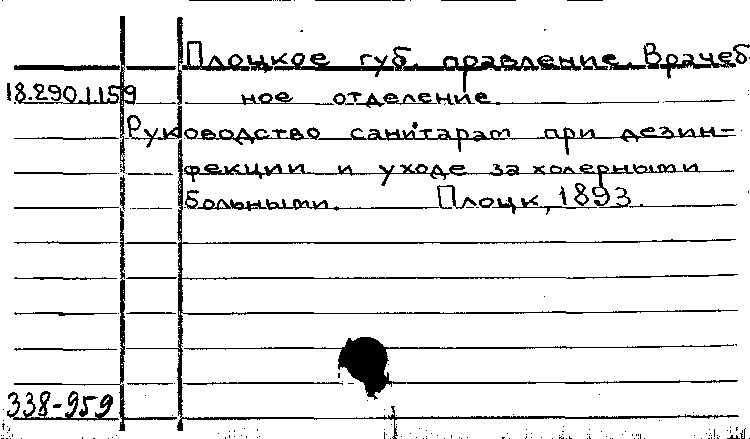 Плоцкое губ. правление. Врачеб-
18.290.1.159 ное отделение.
Руководство санитарам при дезин-
фекции и уходе за холерными
больными. Плоцк, 1893.
338-959